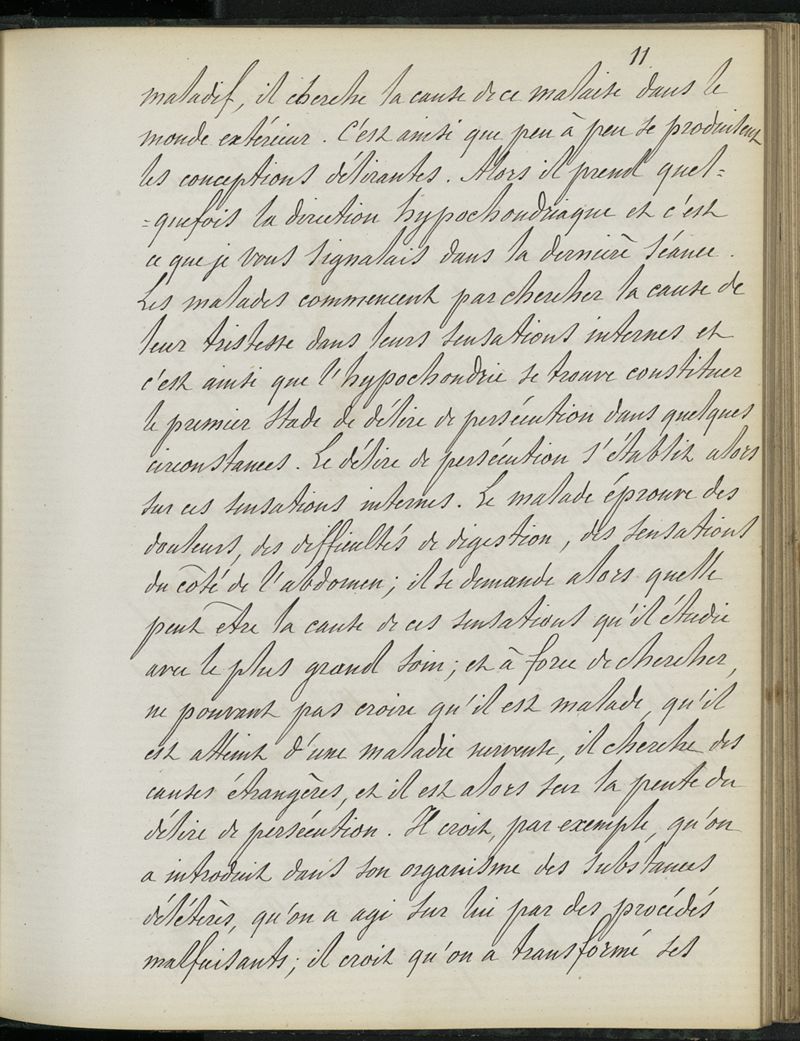 11
maladif, il cherche la cause de ce malaise dans le
monde extérieur. C'est ainsi que peu à peu se produisent
les conceptions délirantes. Alors il prend quel=
=quefois la direction hypochondriaque et c'est
ce que je vous signalais dans la dernière séance.
Les malades commencent par chercher la cause de
leur tristesse dans leurs sensations internes et
c'est ainsi que l'hypochondrie se trouve constituer
le premier stade de délire de persécution dans quelques
circonstances. Le délire de persécution s'établit alors
sur ces sensations internes. Le malade éprouve des
douleurs, des difficultés de digestion, des sensations
du côté de l'abdomen; il se demande alors quelle
peut être la cause de ces sensations qu'il étudie
avec le plus grand soin; et à force de chercher,
ne pouvant pas croire qu'il est malade, qu'il
est atteint d'une maladie nerveuse, il cherche des
causes étrangères, et il est alors sur la pente du
délire de persécution. Il croit, par exemple, qu'on
a introduit dans son organisme des substances
délétères, qu'on a agi sur lui par des procédés
malfaisants; il croit qu'on a transformé ses